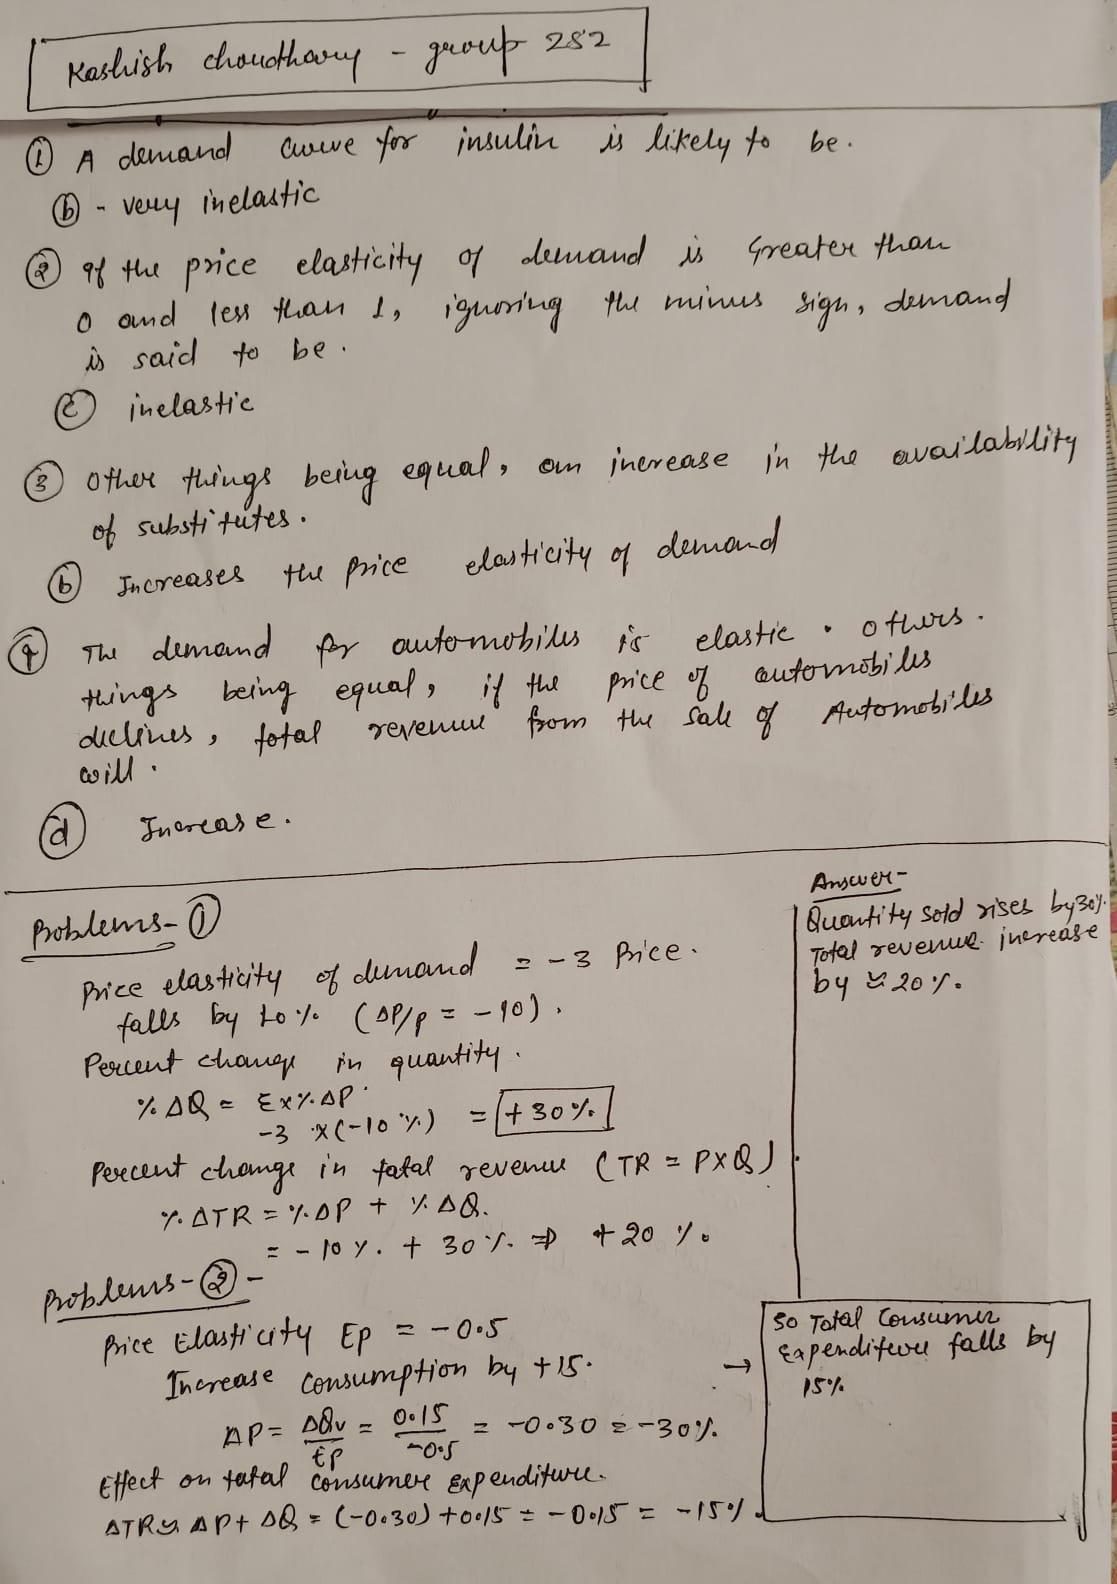 Kashish choudhary - group 282
① A demand curve for insulin is likely to be.
ⓑ - very inelastic
② If the price elasticity of demand is Greater than
0 and less than 1, ignoring the minus sign, demand
is said to be.
ⓒ inelastic
③ Other things being equal, an increase in the availability
of substitutes.
ⓑ Increases the price elasticity of demand
④ The demand for automobiles is elastic. others.
things being equal, if the price of automobiles
declines, total revenue from the sale of Automobiles
will.
ⓓ Increase.
Problems-①
Price elasticity of demand = -3 Price.
falls by 10% (ΔP/p = -10).
Percent change in quantity.
% ΔQ = Ex%ΔP
-3 x(-10%) = +30%
Percent change in total revenue (TR = PXQ)
% ΔTR = %ΔP + %ΔQ.
= -10%. + 30%. ⇒ +20%
Answer-
Quantity sold rises by 30%.
Total revenue increase
by ≈ 20%.
Problems-② -
Price Elasticity Ep = -0.5
Increase consumption by +15.
ΔP = ΔQv/Ep = 0.15/-0.5 = -0.30 = -30%.
Effect on total consumer expenditure.
ΔTR ≈ ΔP + ΔQ = (-0.30) +0.15 = -0.15 = -15%.
→ So Total Consumer
Expenditure falls by
15%